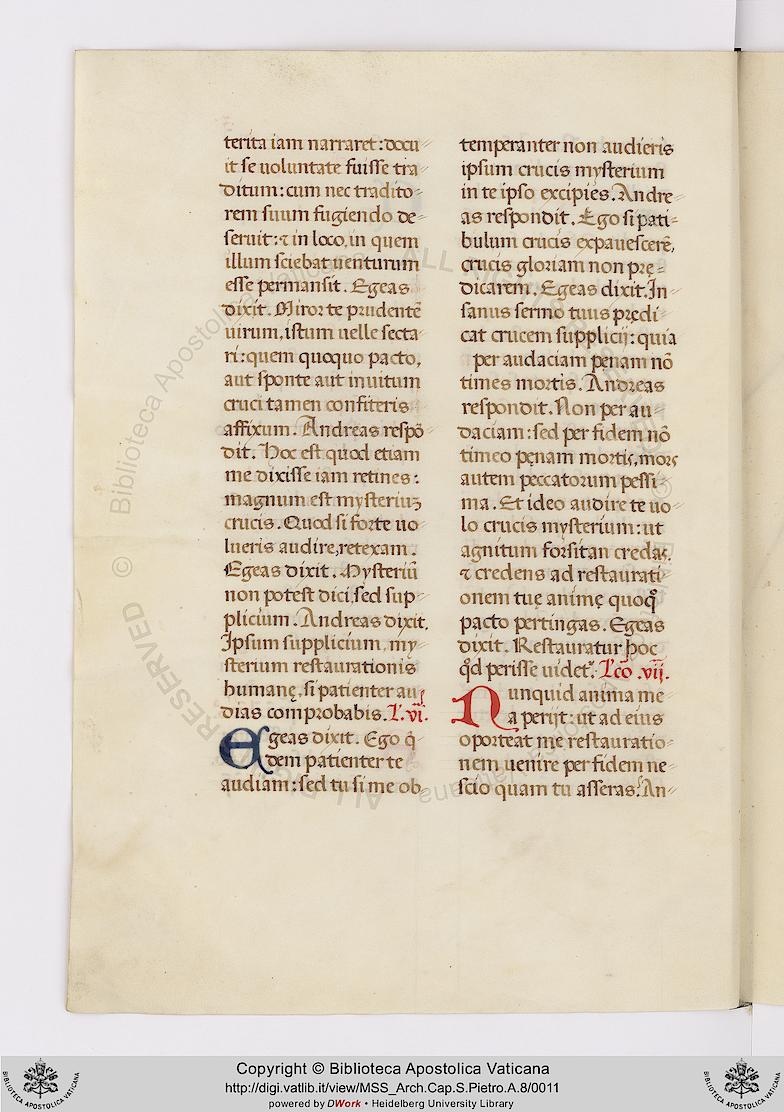 terita iam narraret: docu-
it se uoluntate fuisse tra-
ditum: cum nec tradito-
rem suum fugiendo de-
seruit: ⁊ in loco, in quem
illum sciebat uenturum
esse permansit. Egeas
dixit. Miror te prudentē
uirum, istum uelle secta-
ri: quem quoquo pacto,
aut sponte aut inuitum
cruci tamen confiteris
affixum. Andreas respō-
dit. Hoc est quod etiam
me dixisse iam retines:
magnum est mysteriuʒ
crucis. Quod si forte uo-
lueris audire, retexam.
Egeas dixit. Mysteriū
non potest dici, sed sup-
plicium. Andreas dixit.
Ipsum supplicium, my-
sterium restaurationis
humanę, si patienter au-
dias comprobabis. L. vi.
Egeas dixit. Ego q̇-
dem patienter te
audiam: sed tu si me ob-
temperanter non audieris
ipsum crucis mysterium
in te ipso excipies. Andre-
as respondit. Ego si pati-
bulum crucis expauescerē,
crucis gloriam non prę-
dicarem. Egeas dixit. In-
sanus sermo tuus prędi-
cat crucem supplicij: quia
per audaciam penam nō
times mortis. Andreas
respondit. Non per au-
daciam: sed per fidem nō
timeo pęnam mortis, mors
autem peccatorum pessi-
ma. Et ideo audire te uo-
lo crucis mysterium: ut
agnitum forsitan credas,
⁊ credens ad restaurati-
onem tuę animę quoq̃
pacto pertingas. Egeas
dixit. Restauratur hoc
q̃d perisse uidet᷑. Lcō .vij.
Nunquid anima me-
a perijt: ut ad eius
oporteat me restauratio-
nem uenire per fidem ne-
scio quam tu asseras? An-
© Biblioteca Apostolica Vaticana ALL RIGHTS RESERVED
Copyright © Biblioteca Apostolica Vaticana
http://digi.vatlib.it/view/MSS_Arch.Cap.S.Pietro.A.8/0011
powered by DWork • Heidelberg University Library
BIBLIOTECA APOSTOLICA VATICANA
BIBLIOTECA APOSTOLICA VATICANA